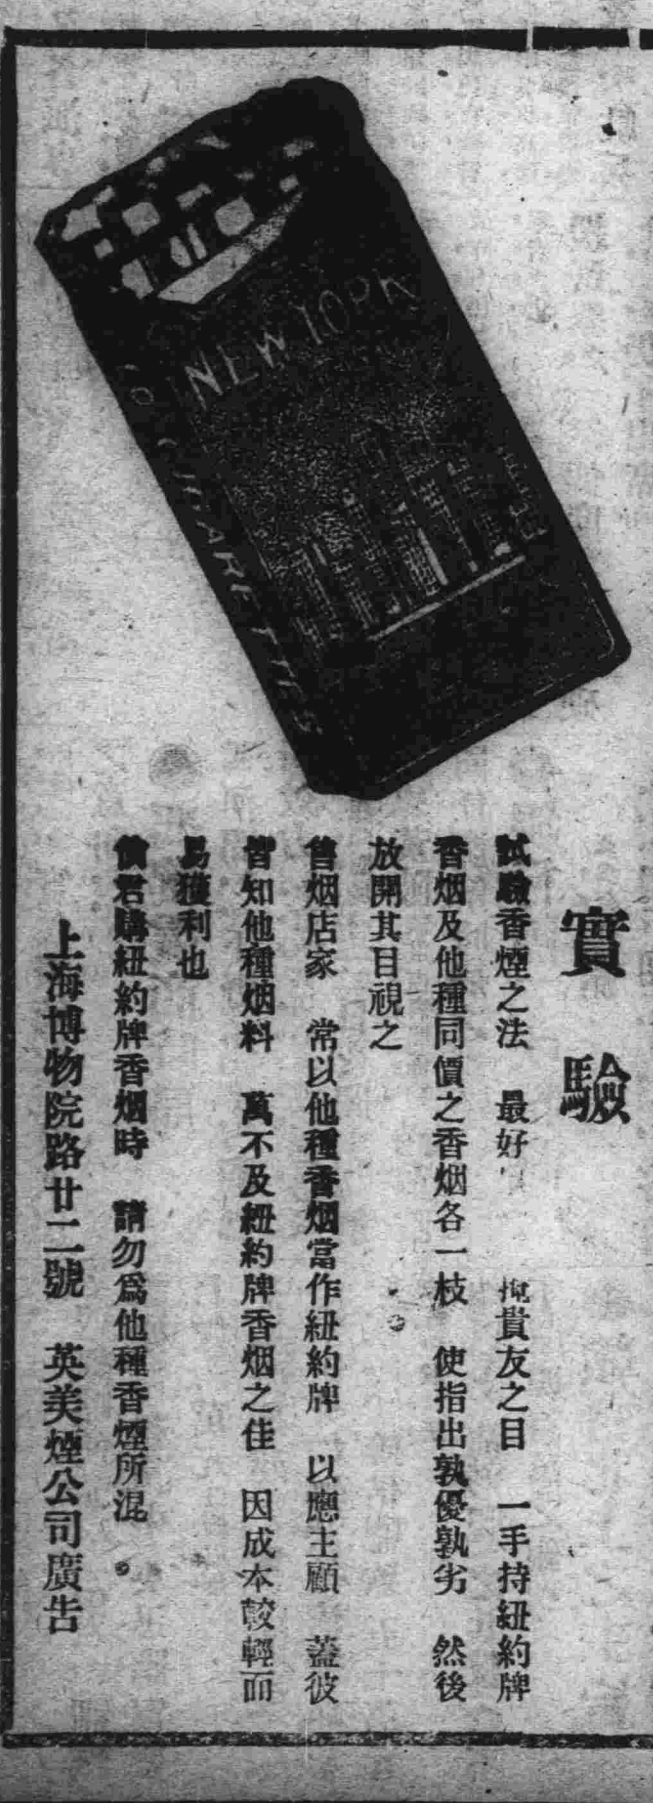 NEW YORK
CIGARETTES
實驗
試驗香煙之法 最好 掩貴友之目 一手持紐約牌
香烟及他種同價之香烟各一枝 使指出孰優孰劣 然後
放開其目視之
售烟店家 常以他種香烟當作紐約牌 以應主顧 蓋彼
皆知他種烟料 萬不及紐約牌香烟之佳 因成本較輕而
易獲利也
倘君購紐約牌香烟時 請勿爲他種香煙所混。
上海博物院路廿二號 英美煙公司廣告